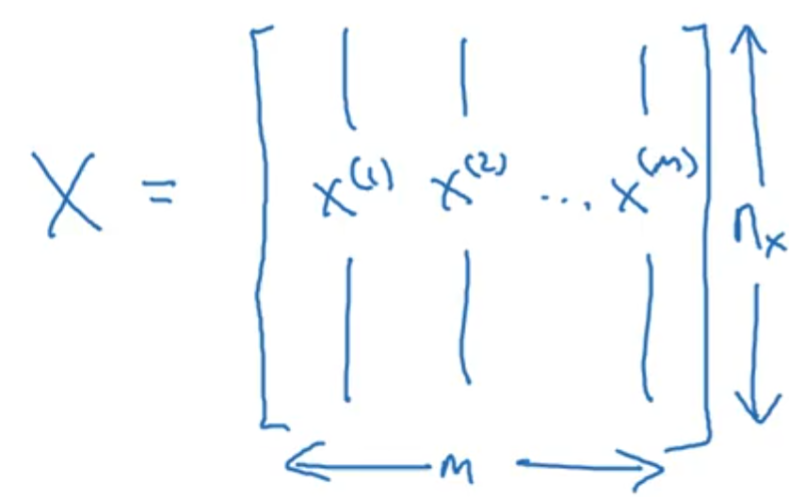 X = [ x^(1) x^(2) ... x^(m) ]
n_x
m